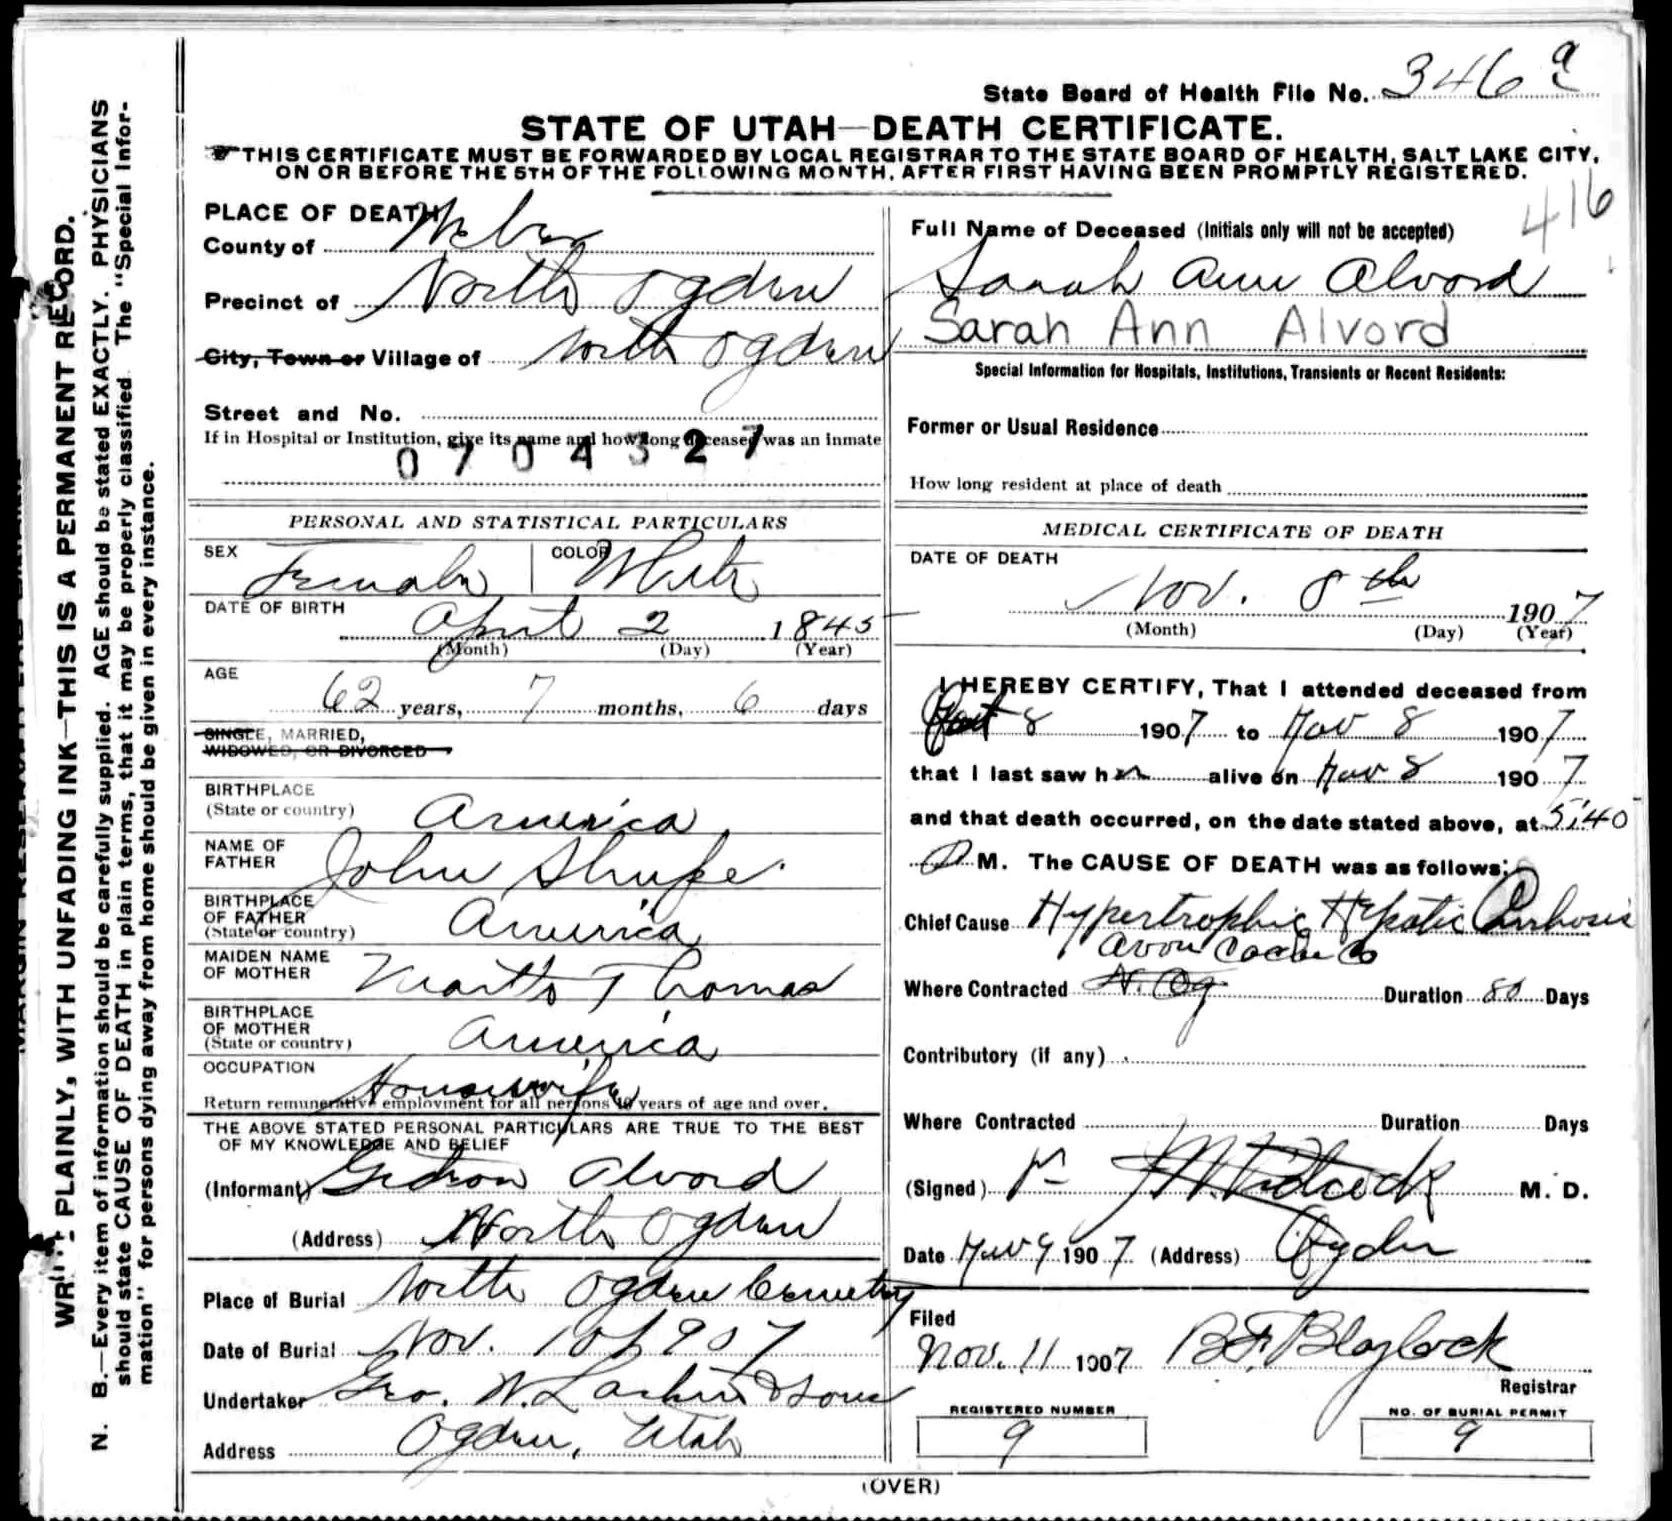 State Board of Health File No. 346 a
STATE OF UTAH—DEATH CERTIFICATE.
THIS CERTIFICATE MUST BE FORWARDED BY LOCAL REGISTRAR TO THE STATE BOARD OF HEALTH, SALT LAKE CITY,
ON OR BEFORE THE 5TH OF THE FOLLOWING MONTH, AFTER FIRST HAVING BEEN PROMPTLY REGISTERED.
416
WRITE PLAINLY, WITH UNFADING INK—THIS IS A PERMANENT RECORD.
N. B.—Every item of information should be carefully supplied. AGE should be stated EXACTLY. PHYSICIANS
should state CAUSE OF DEATH in plain terms, that it may be properly classified. The "Special Infor-
mation" for persons dying away from home should be given in every instance.
PLACE OF DEATH
County of Weber
Precinct of North Ogden
City, Town or Village of North Ogden
Street and No.
If in Hospital or Institution, give its name and how long deceased was an inmate
0704327
PERSONAL AND STATISTICAL PARTICULARS
SEX Female COLOR White
DATE OF BIRTH
April 2 1845
(Month) (Day) (Year)
AGE
62 years, 7 months, 6 days
SINGLE, MARRIED,
WIDOWED, OR DIVORCED
BIRTHPLACE
(State or country) America
NAME OF
FATHER John Shupe
BIRTHPLACE
OF FATHER
(State or country) America
MAIDEN NAME
OF MOTHER Thomas
BIRTHPLACE
OF MOTHER
(State or country) America
OCCUPATION
Housewife
Return remunerative employment for all persons 10 years of age and over.
THE ABOVE STATED PERSONAL PARTICULARS ARE TRUE TO THE BEST
OF MY KNOWLEDGE AND BELIEF
(Informant) Gideon Alvord
(Address) North Ogden
Place of Burial North Ogden Cemetery
Date of Burial Nov. 10 1907
Undertaker Geo. W. Larkin & Sons
Address Ogden, Utah
Full Name of Deceased (Initials only will not be accepted)
Sarah Ann Alvord
Sarah Ann Alvord
Special Information for Hospitals, Institutions, Transients or Recent Residents:
Former or Usual Residence
How long resident at place of death
MEDICAL CERTIFICATE OF DEATH
DATE OF DEATH
Nov. 8th 1907
(Month) (Day) (Year)
I HEREBY CERTIFY, That I attended deceased from
8 1907 to Nov 8 1907
that I last saw her alive on Nov 8 1907
and that death occurred, on the date stated above, at 5:40
P M. The CAUSE OF DEATH was as follows:
Chief Cause Hypertrophic Hepatic Cirrhosis
Avon Cache Co
Where Contracted N. Og Duration 80 Days
Contributory (if any)
Where Contracted Duration Days
(Signed) M. D.
Date Nov 9 1907 (Address) Ogden
Filed
Nov. 11 1907 B. F. Blaylock
Registrar
REGISTERED NUMBER
9
NO. OF BURIAL PERMIT
9
(OVER)